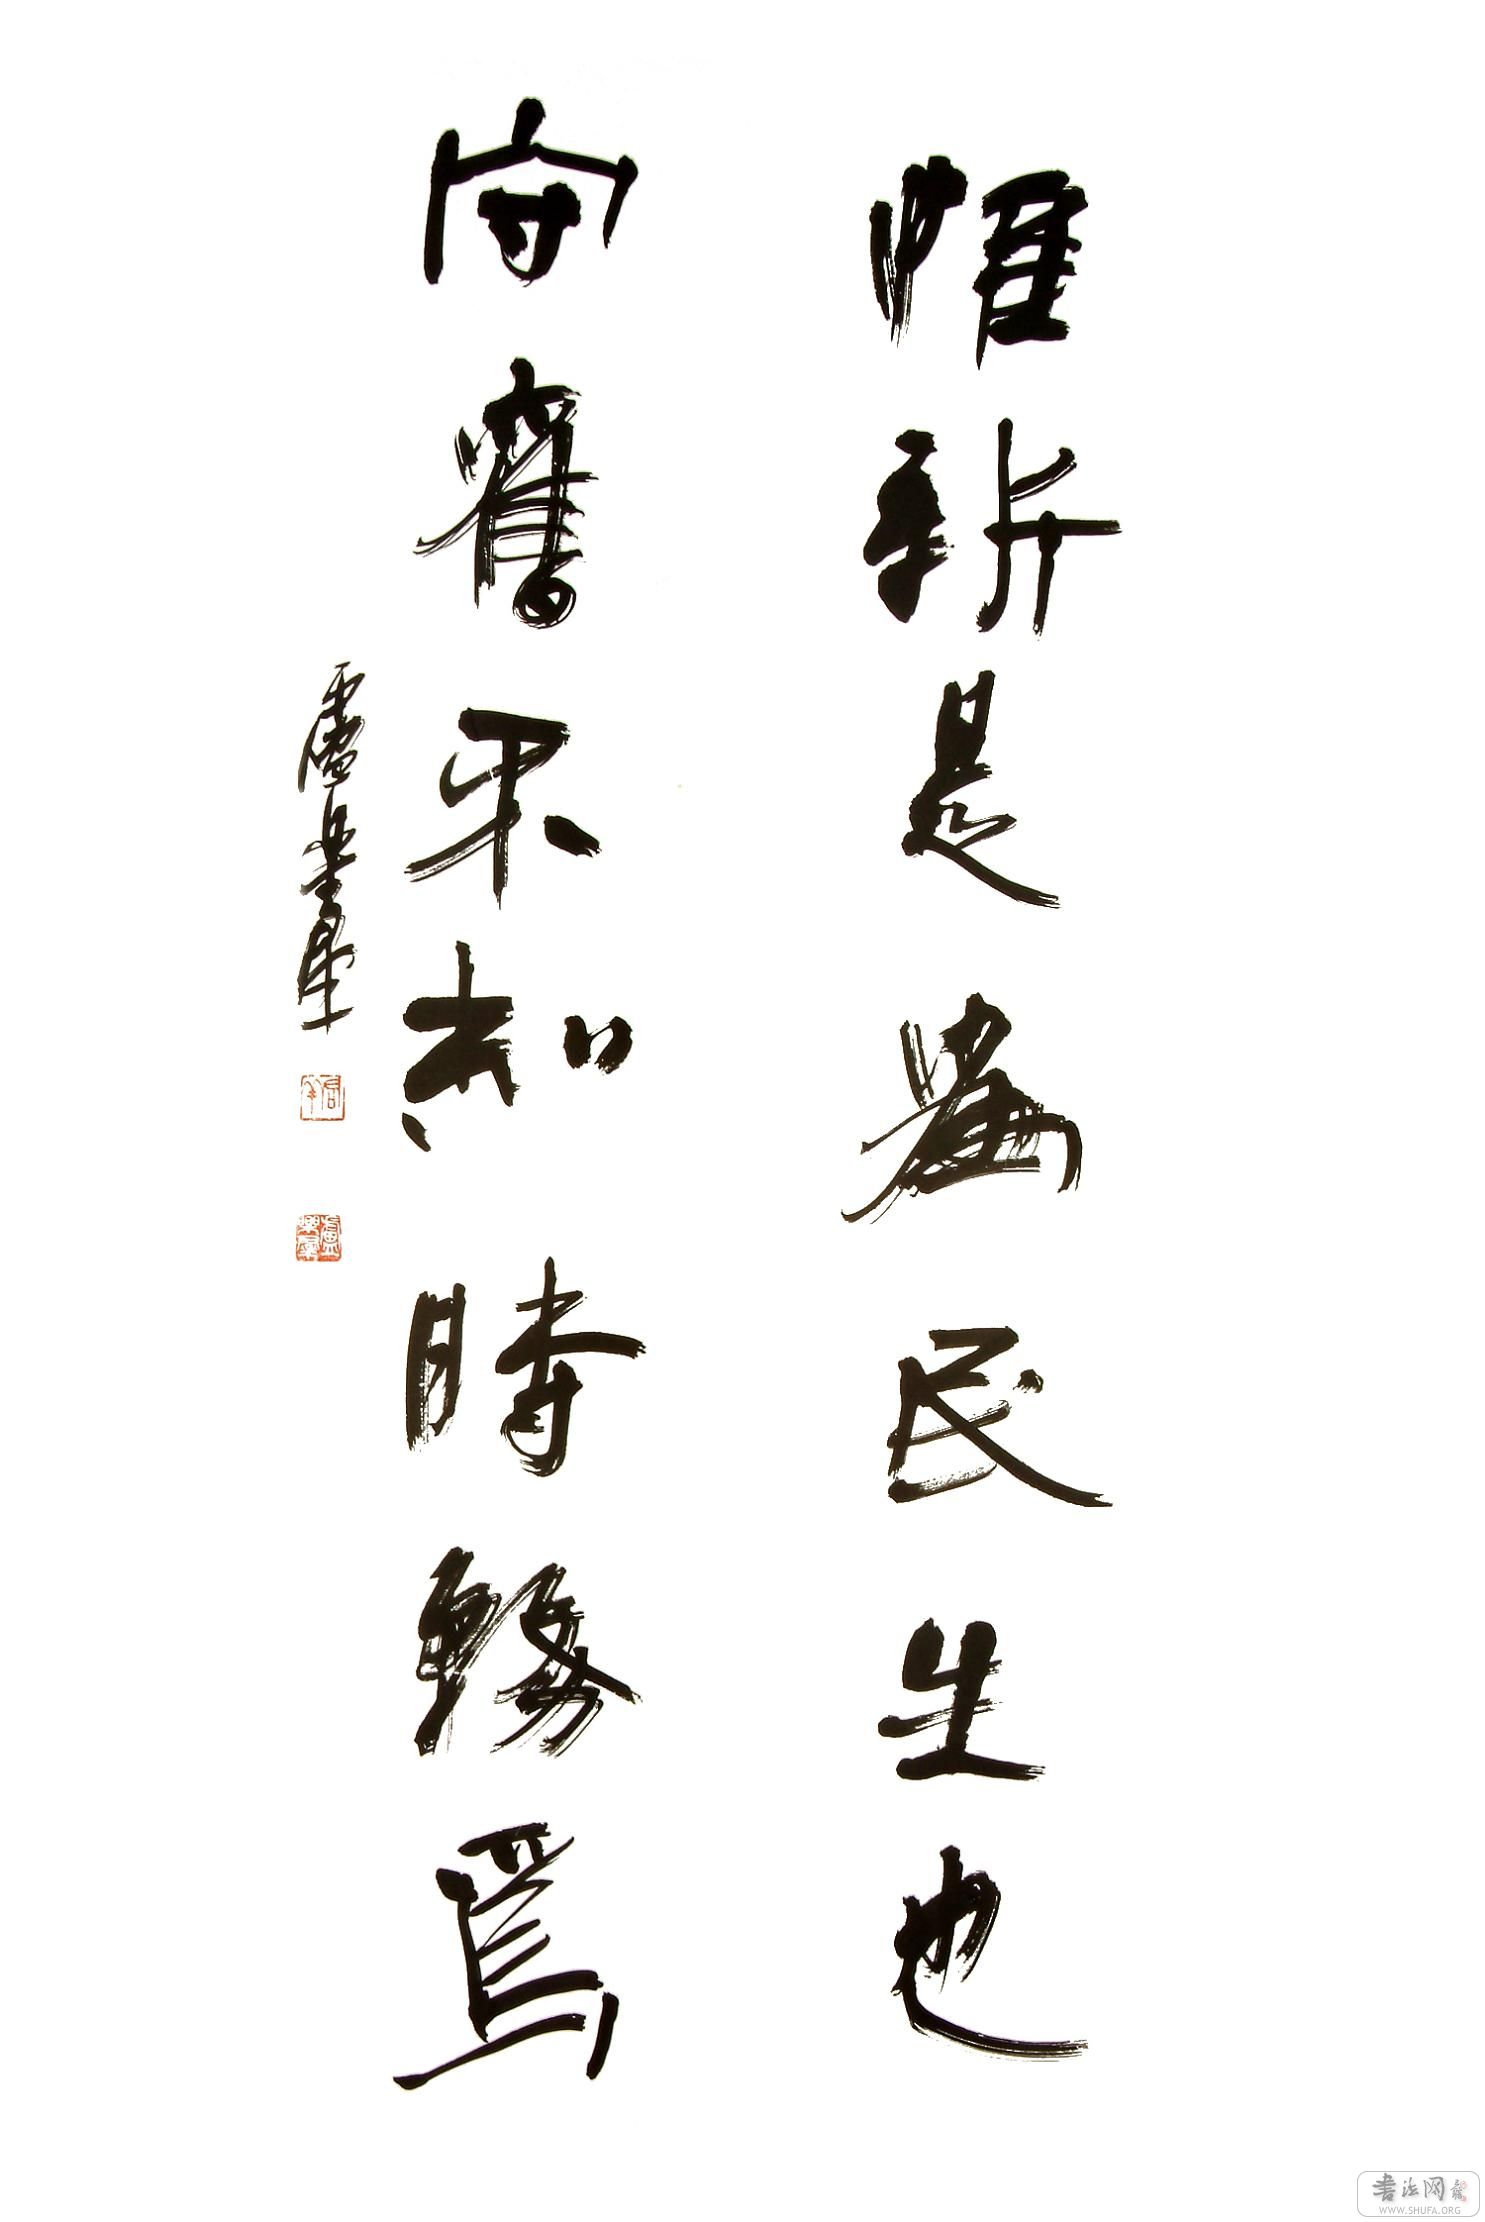 惟新是為民生也
守舊不知時務焉
盧樂群
盧樂群
書法网
WWW.SHUFA.ORG